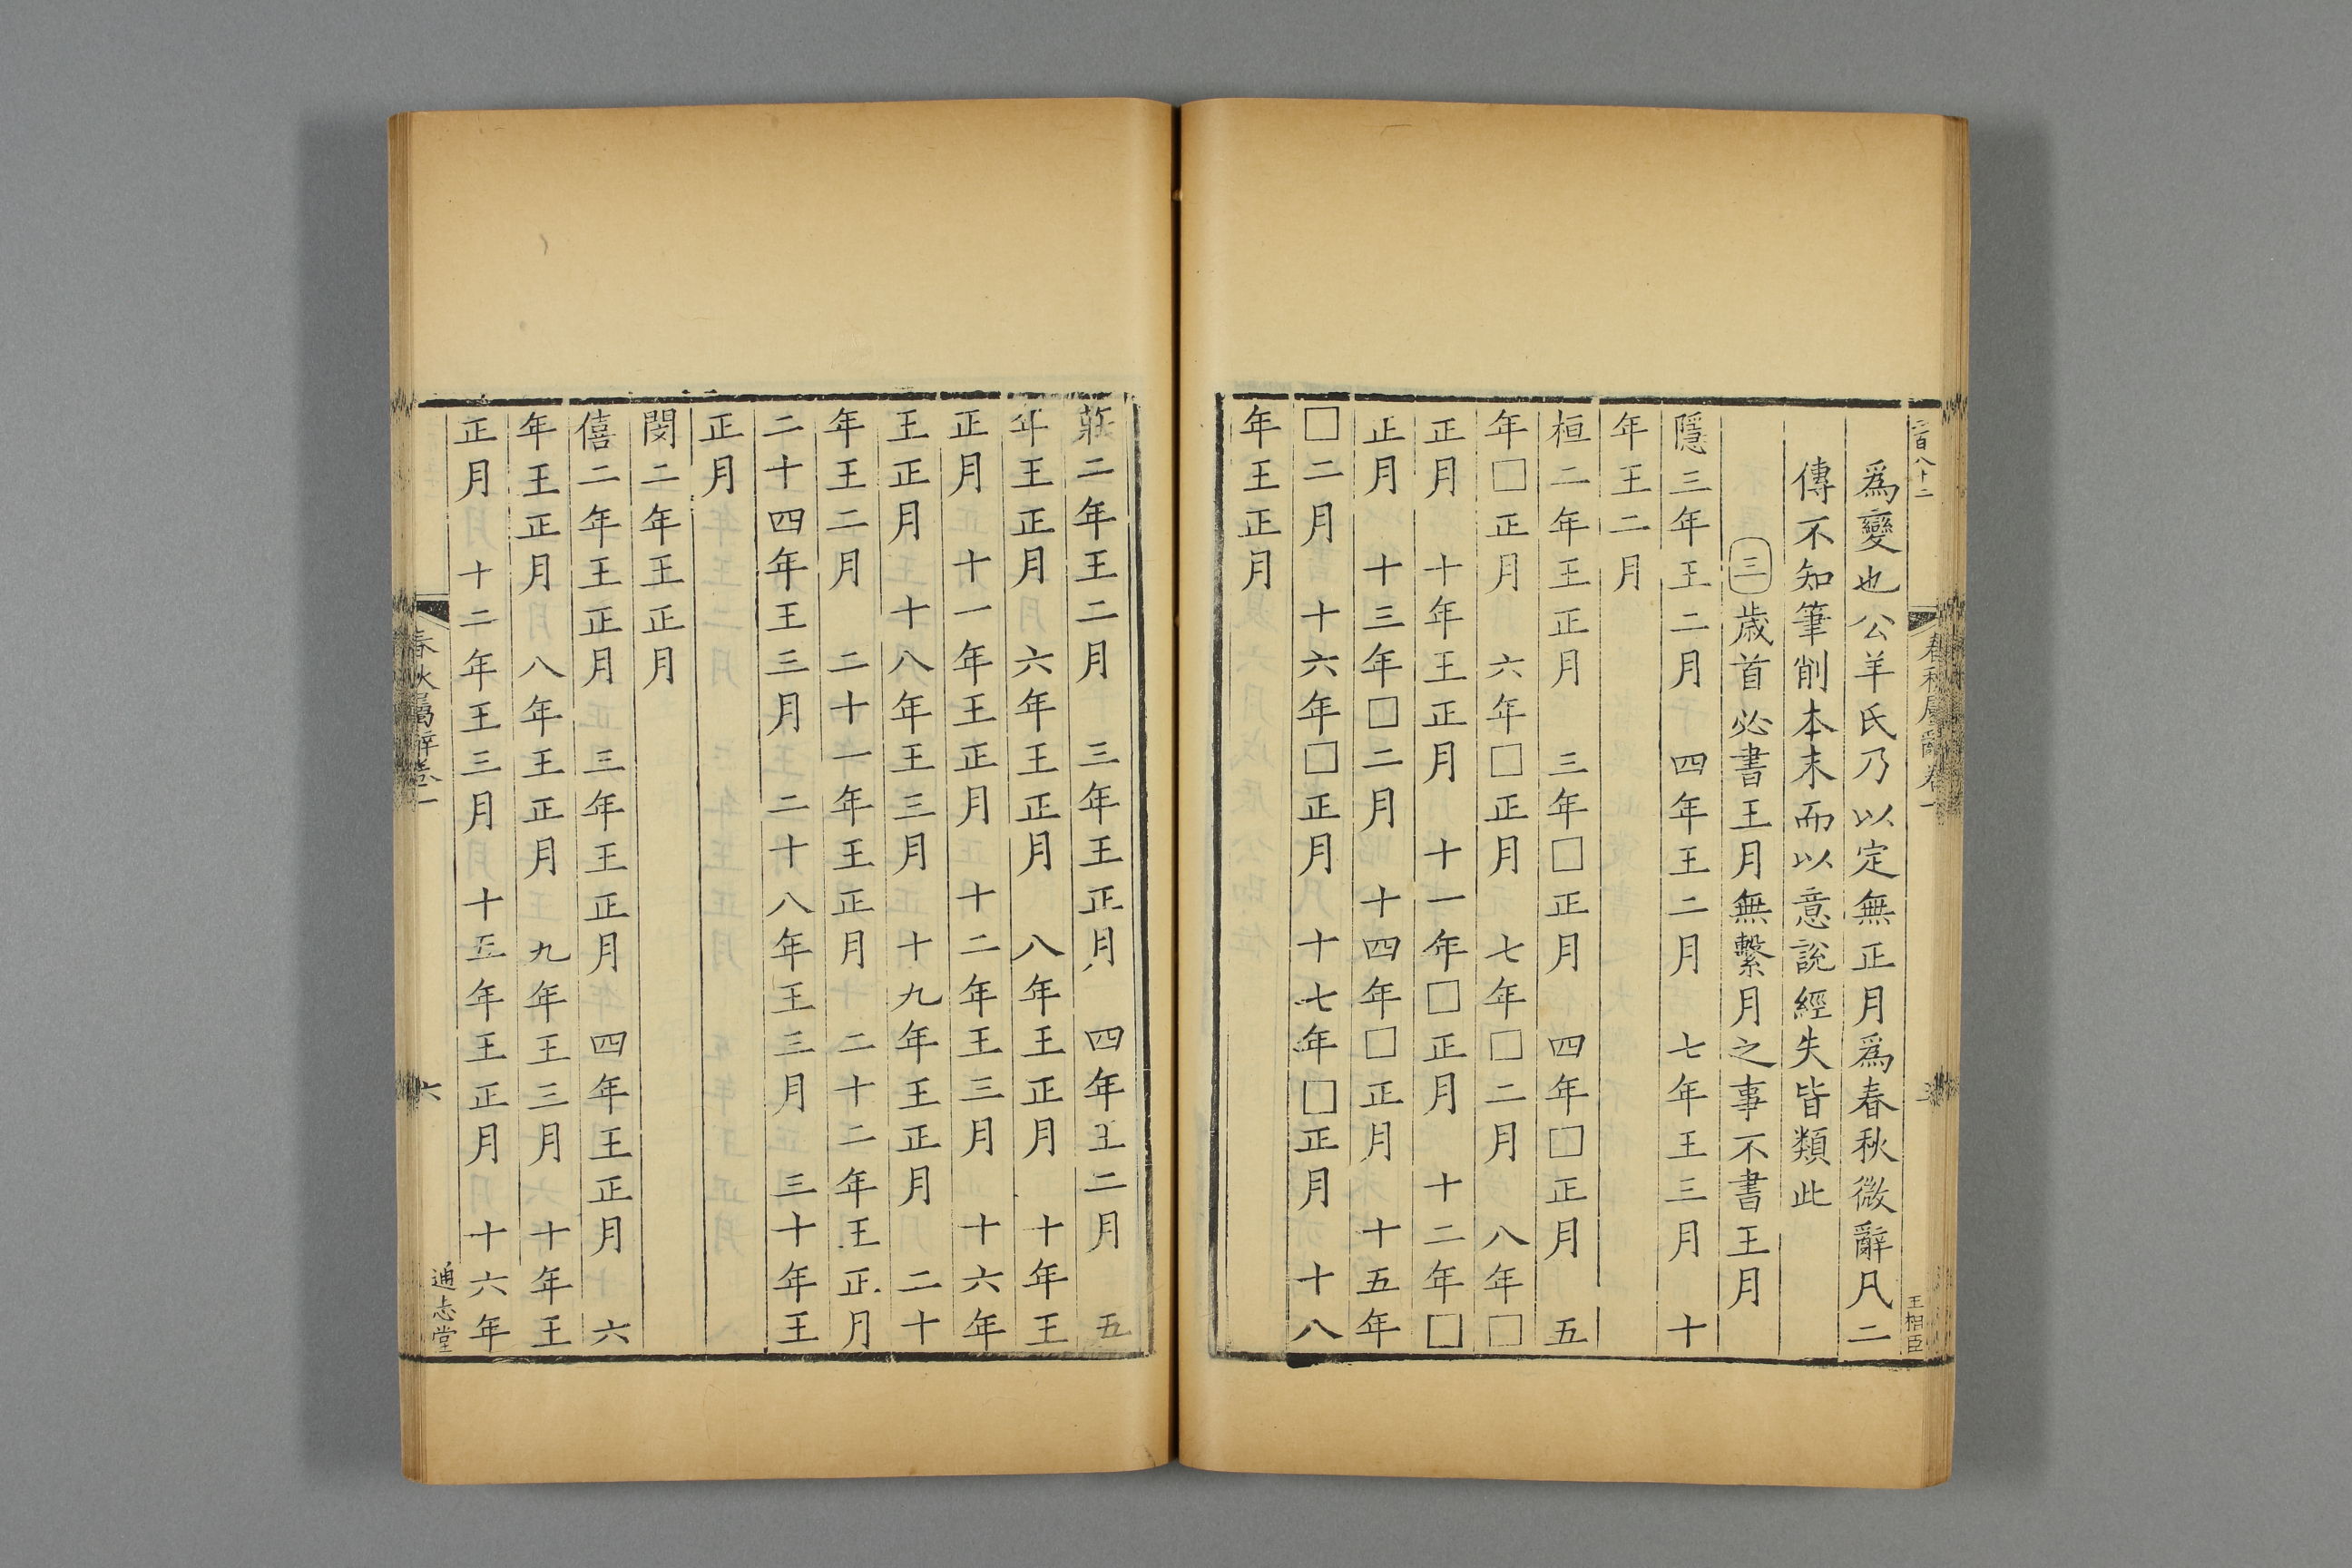 二百八十二
春秋屬辭卷一
王相臣
爲變也公羊氏乃以定無正月爲春秋微辭凡二
傳不知筆削本末而以意説經失皆類此
三歲首必書王月無繫月之事不書王月
隱三年王二月 四年王二月 七年王三月 十
年王二月
桓二年王正月 三年□正月 四年□正月 五
年□正月 六年□正月 七年□二月 八年□
正月 十年王正月 十一年□正月 十二年□
正月 十三年□二月 十四年□正月 十五年
□二月 十六年□正月 十七年□正月 十八
年王正月
莊二年王二月 三年王正月 四年王二月 五
年王正月 六年王正月 八年王正月 十年王
正月 十一年王正月 十二年王三月 十六年
王正月 十八年王三月 十九年王正月 二十
年王二月 二十一年王正月 二十二年王正月
二十四年王三月 二十八年王三月 三十年王
正月
閔二年王正月
僖二年王正月 三年王正月 四年王正月 六
年王正月 八年王正月 九年王三月 十年王
正月 十二年王三月 十五年王正月 十六年
春秋屬辭卷一
六
通志堂